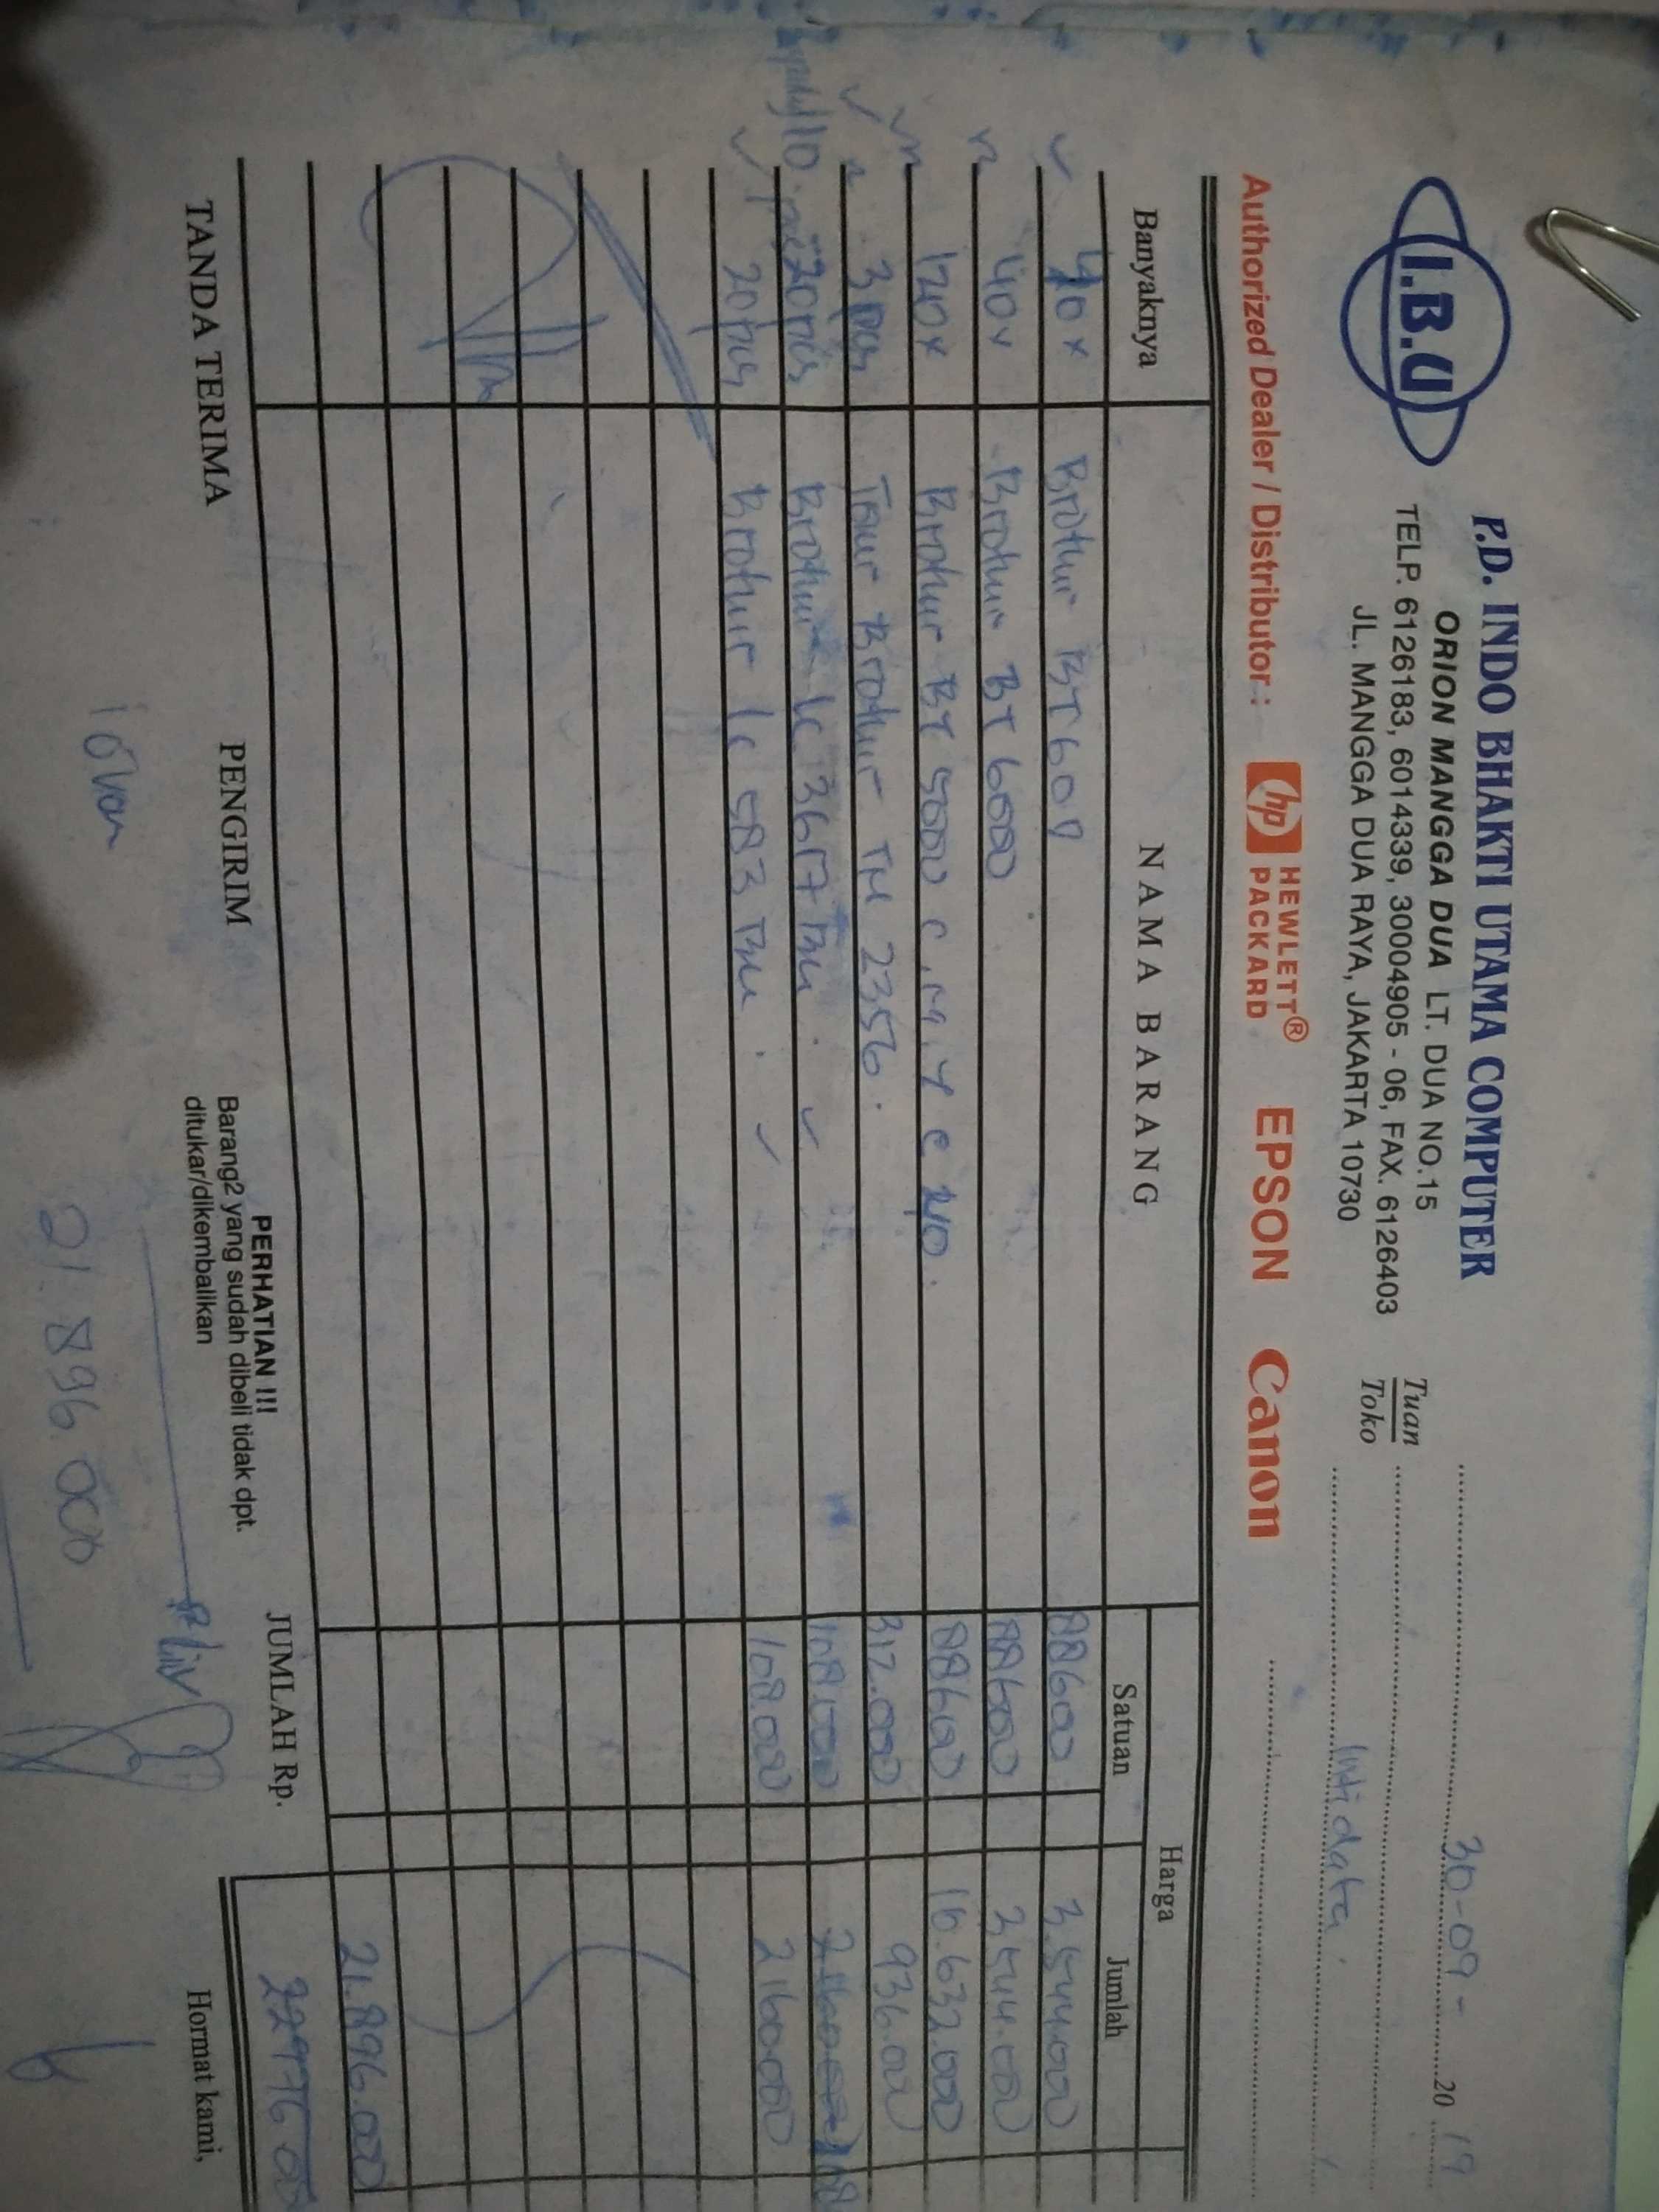 I.B.U
P.D. INDO BHAKTI UTAMA COMPUTER
ORION MANGGA DUA LT. DUA NO.15
TELP. 6126183, 6014339, 30004905 - 06, FAX. 6126403
JL. MANGGA DUA RAYA, JAKARTA 10730
30-09- 20 19
Tuan
Toko
Inti data
Authorized Dealer / Distributor : hp HEWLETT® PACKARD EPSON Canon
Banyaknya NAMA BARANG Harga
Satuan Jumlah
40 x Brother BT 6001 88600 3.544.000
40 x Brother BT 6000 88600 3.544.000
120 x Brother BT 5000 C, M, Y @ 40. 88600 10.632.000
3 pcs Toner Brother TN 2356. 312.000 936.000
20 pcs Brother LC 3617 BK 108.000
20 pcs Brother LC 583 BK 108.000 2160.000
21.896.000
JUMLAH Rp. 22976 000
TANDA TERIMA
PENGIRIM
PERHATIAN !!!
Barang2 yang sudah dibeli tidak dpt.
ditukar/dikembalikan
Hormat kami,
21. 896. 000